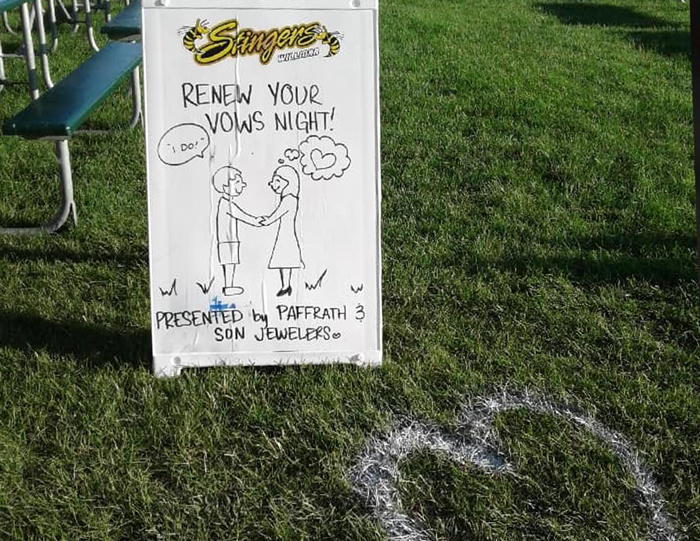 Stingers
WILLMAR
RENEW YOUR
VOWS NIGHT!
"I DO!"
PRESENTED by PAFFRATH &
SON JEWELERS